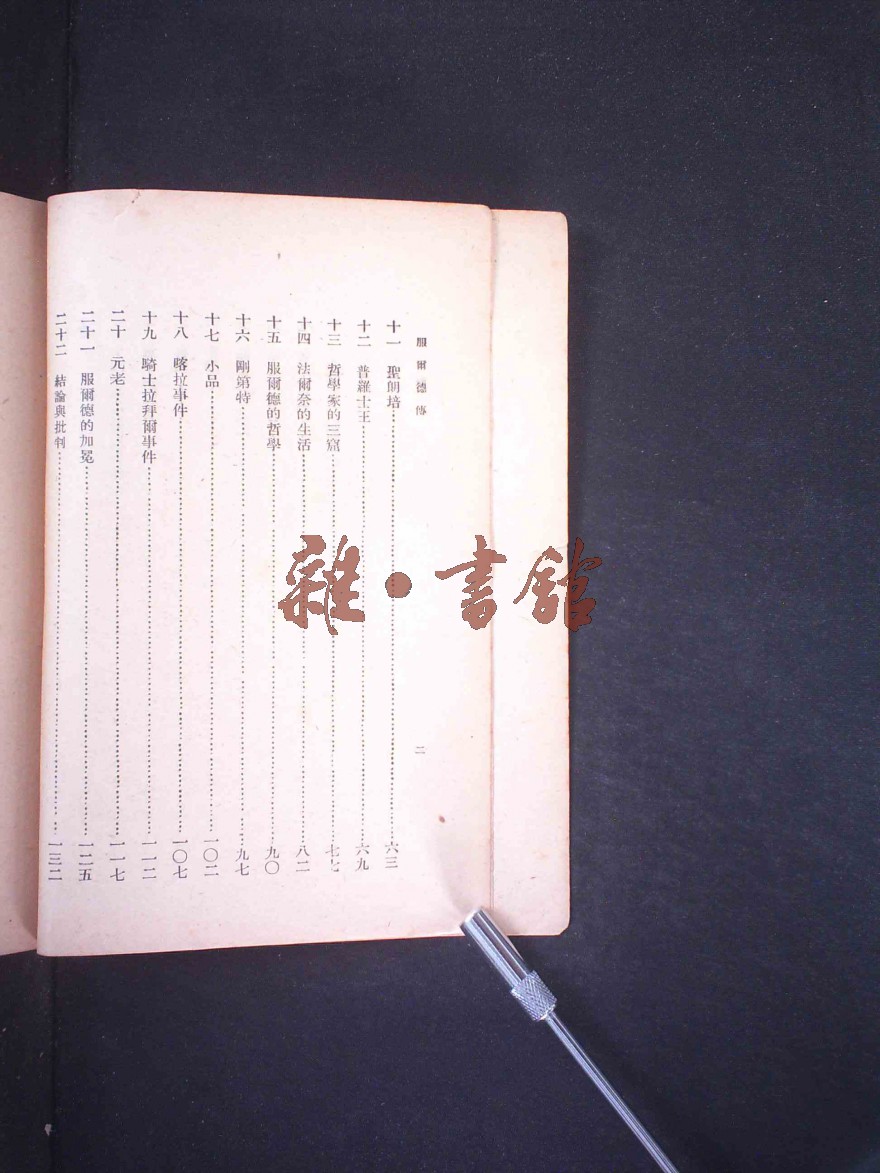 服爾德傳
二
十一 聖朗培……六三
十二 普羅士王……六九
十三 哲學家的三窟……七七
十四 法爾奈的生活……八二
十五 服爾德的哲學……九〇
十六 剛第特……九七
十七 小品……一〇二
十八 喀拉事件……一〇七
十九 騎士拉拜爾事件……一一二
二十 元老……一一七
二十一 服爾德的加冕……一二五
二十二 結論與批判……一三二
雜·書館